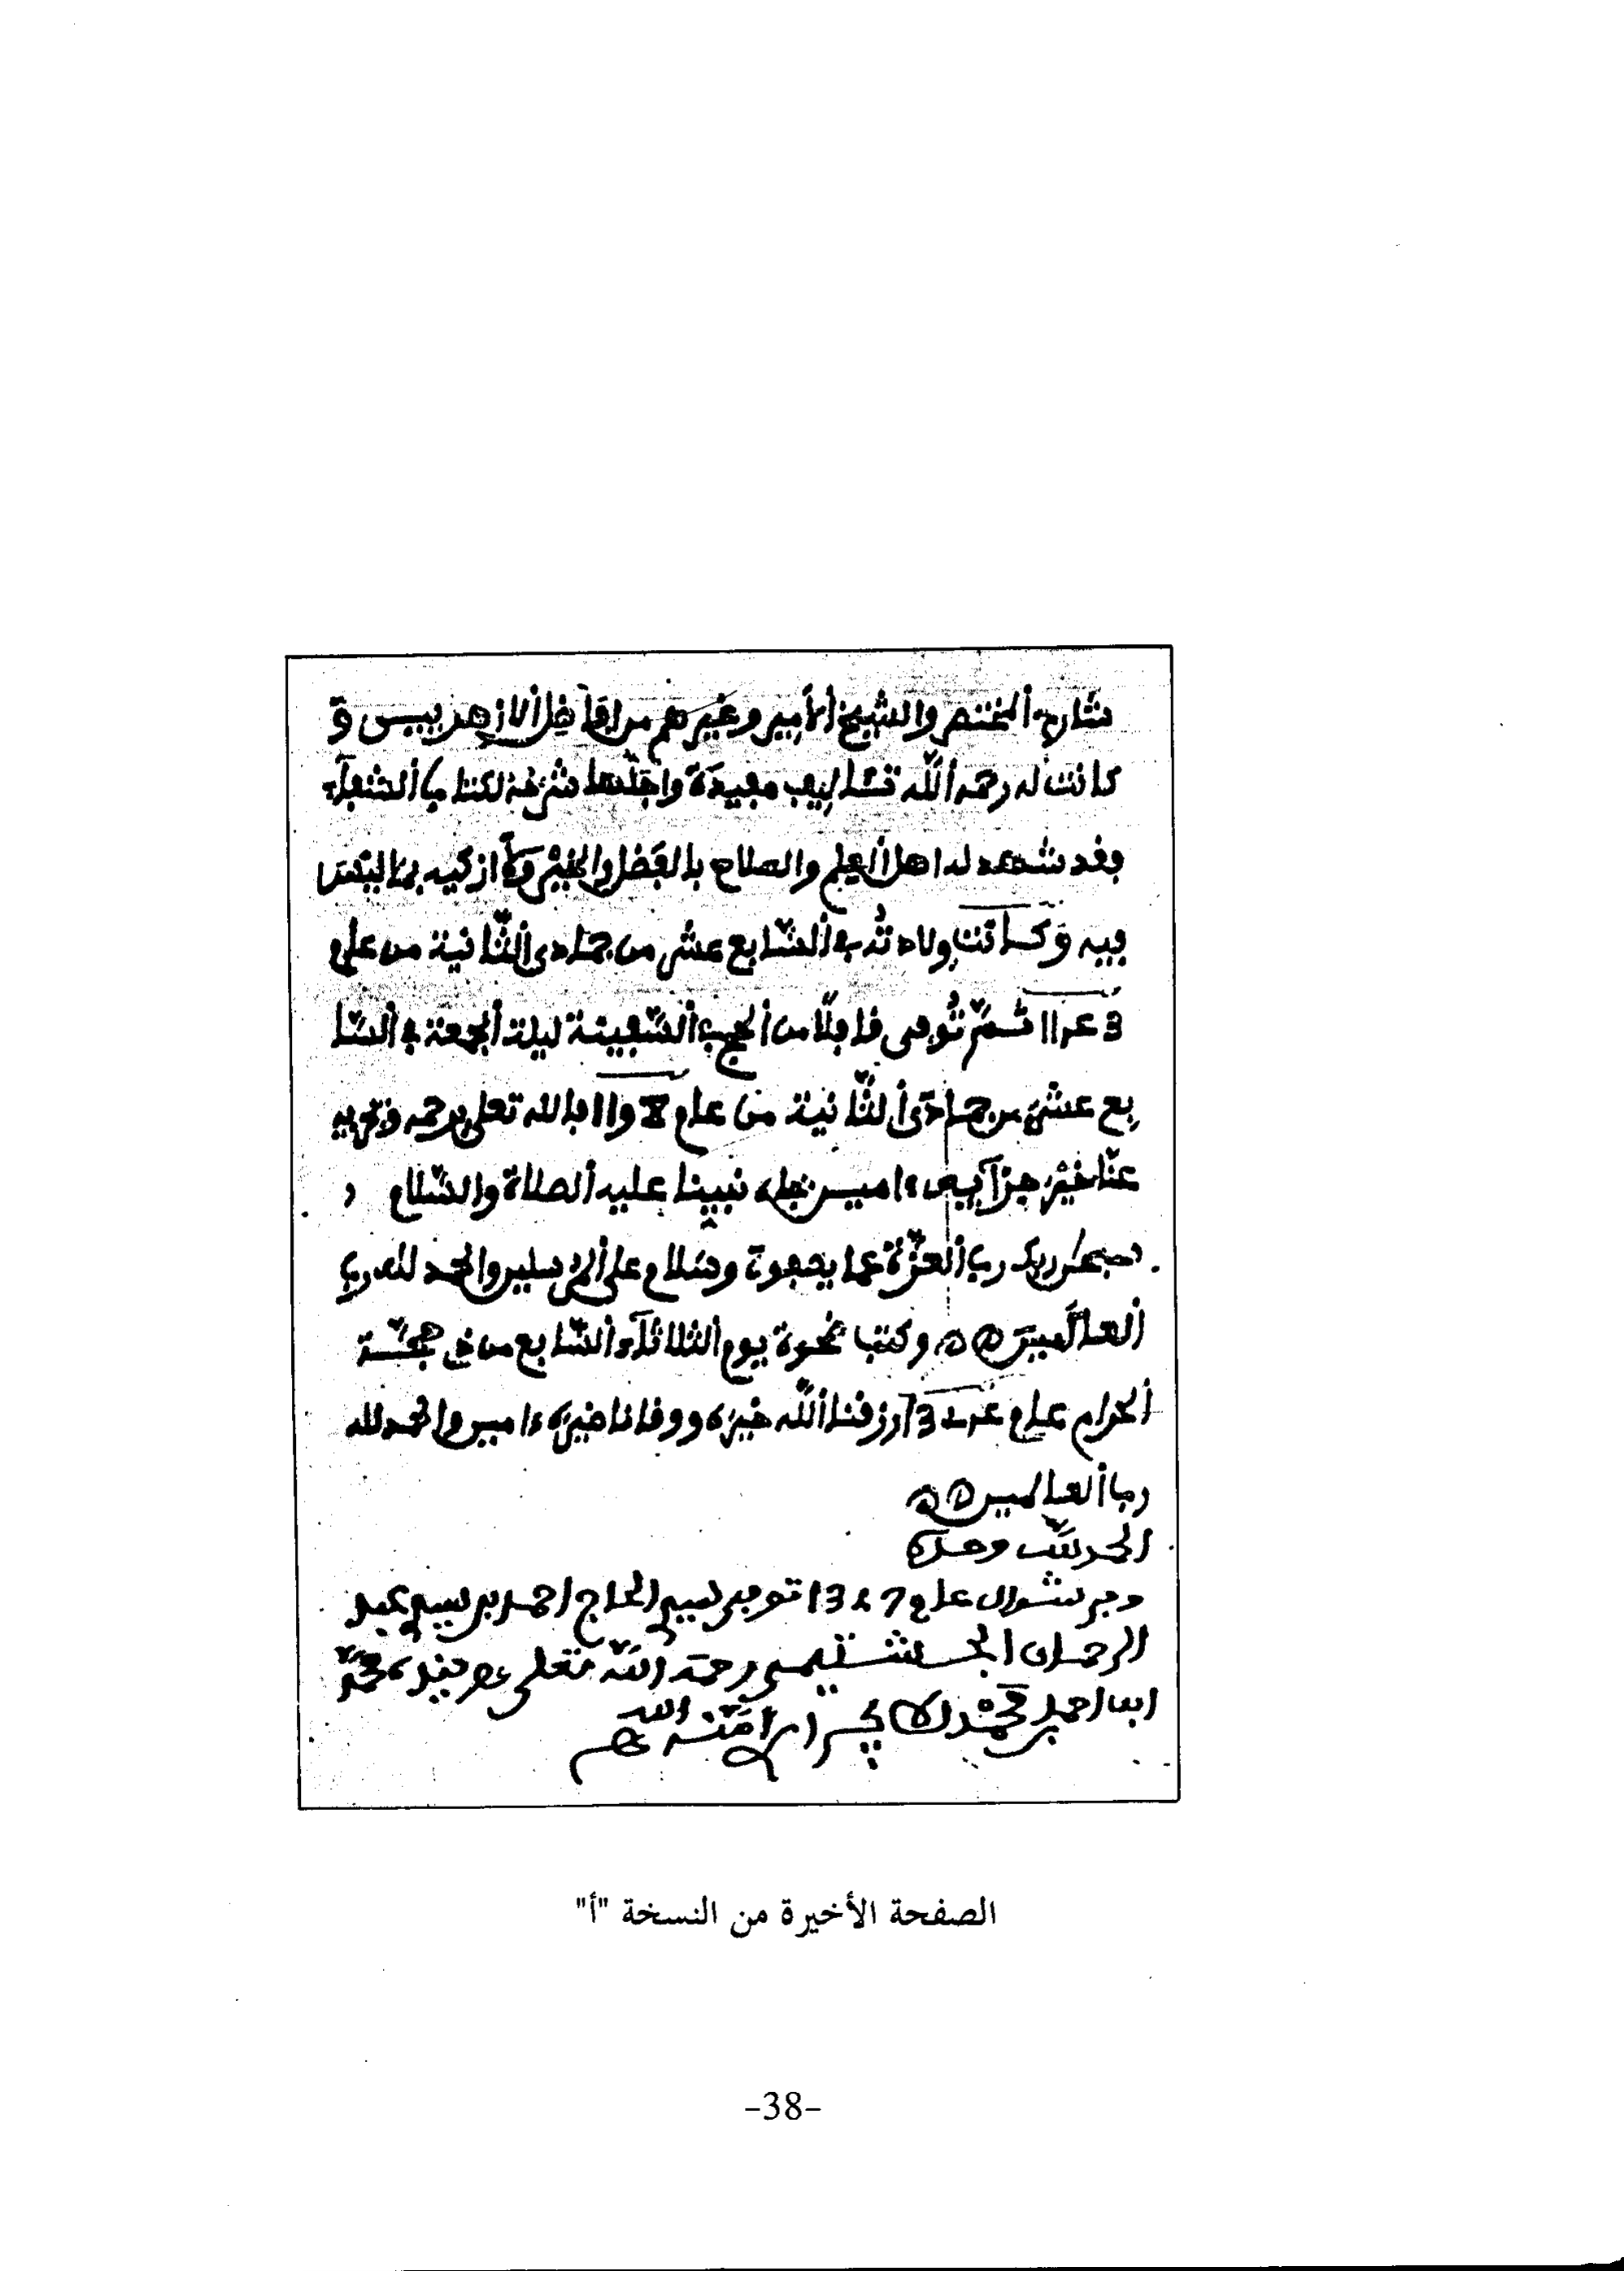 شارح المختصر والشيخ الأمير وغيرهم من افاضل الازهريين و
كانت له رحمه الله تئاليف مفيدة واجلها شرحه لكتاب الشفاء
فقد شهد له اهل العلم والصلاح بالفضل والخير ولا ازكيه بما ليس
فيه وكانت ولادته في السابع عشر من جمادى الثانية من عام
ثم توفي قافلا من الحج في السفينة ليلة الجمعة في السا
بع عشر من جمادى الثانية من عام فالله تعلى يرحمه ويجزيه
عنا خير جزآيه ءامين بجاه نبينا عليه الصلاة والسلام
سبحان ربك رب العزة عما يصفون وسلام على المرسلين والحمد لله رب
العالمين وكتب ضحوة يوم الثلاثاء السابع من ذي حجة
الحرام عام رزقنا الله خيره ووقانا ضيره ءامين والحمد لله
رب العالمين
الحمد لله وحده
وفي شوال عام 1327 توفي سيدي الحاج احمد بن سيدي عبد
الرحمان الجشتيمي رحمه الله تعلى حفيده محمد
ابن احمد بن محمد امنه الله
الصفحة الأخيرة من النسخة "أ"
-38-